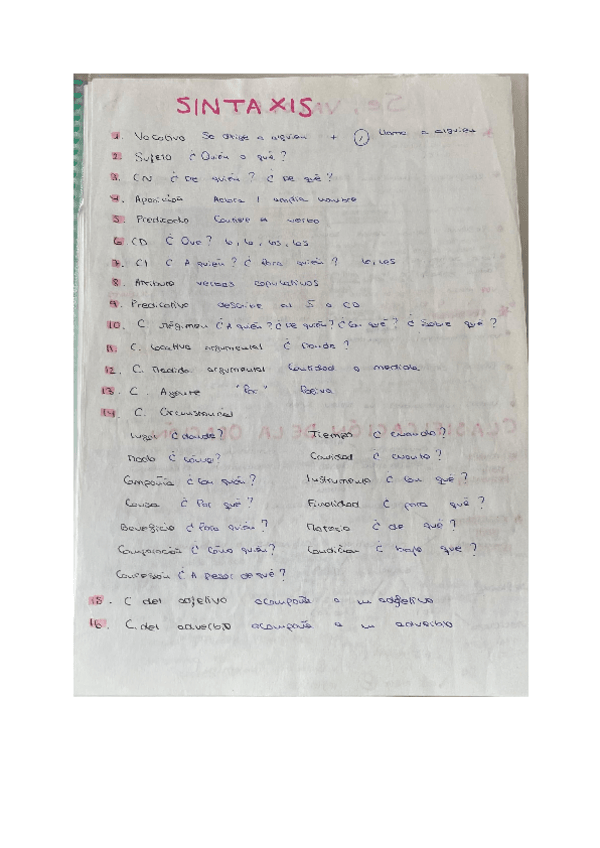 SINTAXIS
1. Vocativo Se dirige a alguien + (,) llama a alguien
2. Sujeto ¿Quién o qué?
3. CN ¿De quién? ¿De qué?
4. Aposición Aclara / amplía nombre
5. Predicado Contiene el verbo
6. CD ¿Qué? lo, la, los, las
7. CI ¿A quién? ¿Para quién? le, les
8. Atributo verbos copulativos
9. Predicativo describe al S o CD
10. C. Régimen ¿A quién? ¿De quién? ¿Con qué? ¿Sobre qué?
11. C. locativo argumental ¿Dónde?
12. C. Medida argumental Cantidad o medida
13. C. Agente "Por" Pasiva
14. C. Circunstancial
Lugar ¿dónde? Tiempo ¿cuándo?
Modo ¿cómo? Cantidad ¿cuánto?
Compañía ¿con quién? Instrumento ¿con qué?
Causa ¿Por qué? Finalidad ¿para qué?
Beneficio ¿Para quién? Materia ¿de qué?
Comparación ¿Cómo quién? Condición ¿bajo que?
Concesión ¿A pesar de qué?
15. C del adjetivo acompaña a un adjetivo
16. C. del adverbio acompaña a un adverbio